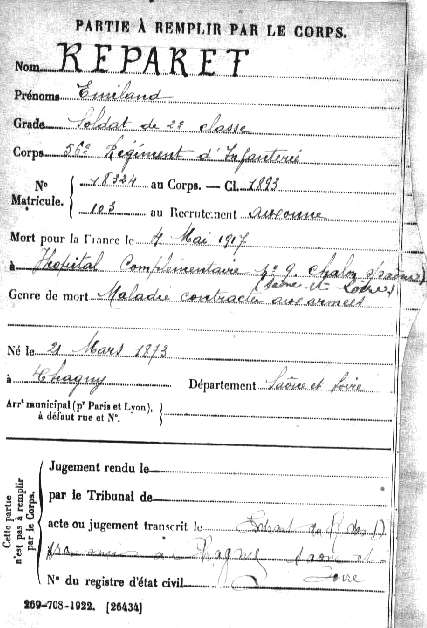 PARTIE À REMPLIR PAR LE CORPS.
Nom REPARET
Prénoms Emiland
Grade Soldat de 2e classe
Corps 56e Régiment d'Infanterie
N° Matricule. 18324 au Corps. — Cl. 1893
103 au Recrutement auxonne
Mort pour la France le 4 Mai 1917
à Hopital Complementaire n° 9 Chalon s/saône
(saône et Loire)
Genre de mort Maladie contractée aux armées
Né le 21 Mars 1873
à Chagny Département Saône et Loire
Arrt municipal (pr Paris et Lyon),
à défaut rue et N°.
Cette partie n'est pas à remplir par le Corps.
Jugement rendu le
par le Tribunal de
acte ou jugement transcrit le
Chagny Saône et
Loire
N° du registre d'état civil
269-708-1922. [26434]